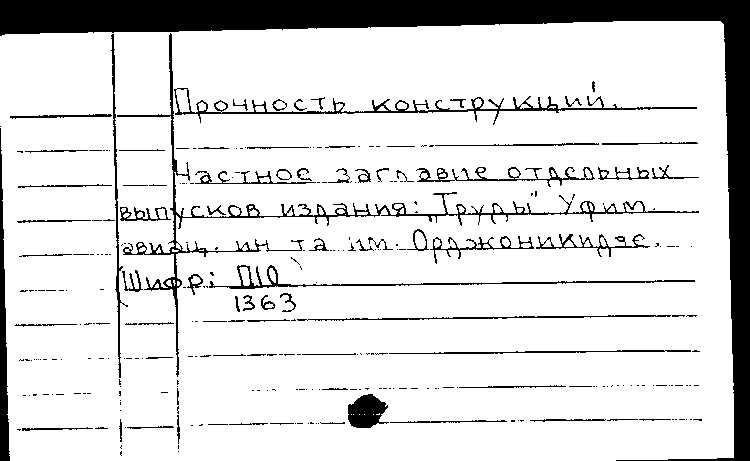 Прочность конструкций.
Частное заглавие отдельных
выпусков издания: „Труды" Уфим.
авиац. ин-та им. Орджоникидзе.
(Шифр: П10)
1363